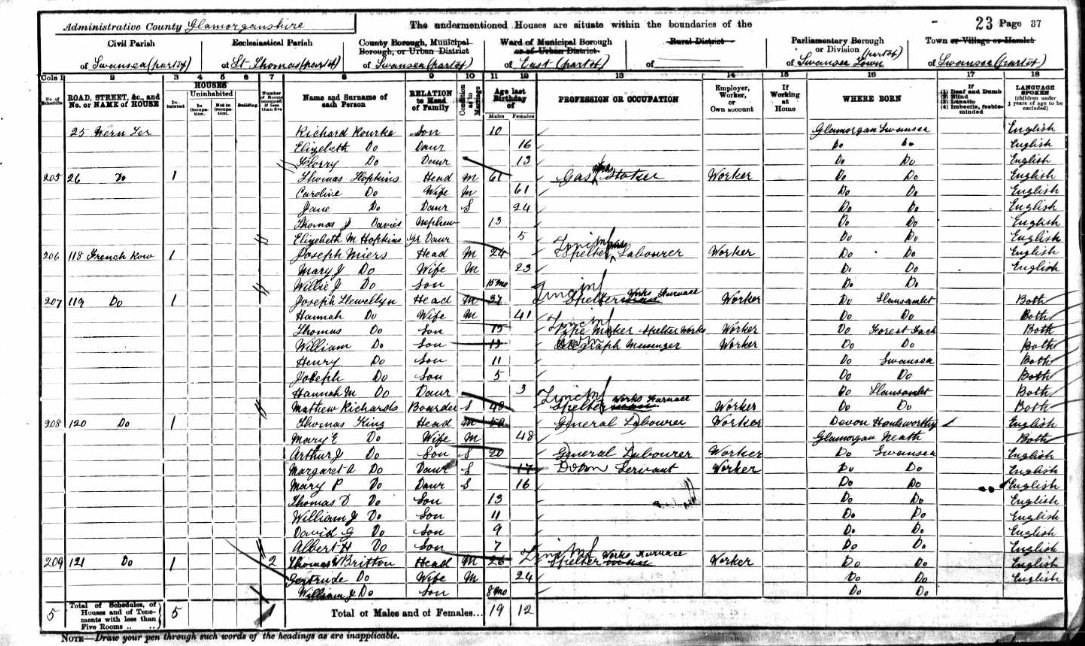 Administrative County Glamorganshire
The undermentioned Houses are situate within the boundaries of the
23 Page 37
Civil Parish of Swansea (part of)
Ecclesiastical Parish of St. Thomas (part of)
County Borough, Municipal Borough, or Urban District of Swansea (part of)
Ward of Municipal Borough or of Urban District of East (part of)
Rural District of
Parliamentary Borough or Division of Swansea Town (part of)
Town or Village or Hamlet of Swansea (part of)
Cols 1 2 3 4 5 6 7 8 9 10 11 12 13 14 15 16 17 18
No. of Schedule
ROAD, STREET, &c., and No. or NAME of HOUSE
HOUSES
Inhabited
Uninhabited
In Occupation
Not in Occupation
Building
Name and Surname of each Person
RELATION to Head of Family
Condition as to Marriage
Age last Birthday of
Males Females
PROFESSION OR OCCUPATION
Employer, Worker, or Own account
If Working at Home
WHERE BORN
If (1) Deaf and Dumb (2) Blind (3) Lunatic (4) Imbecile, feeble-minded
LANGUAGE SPOKEN (children under 3 years of age to be excluded)
25 Wern Ter Richard Rourke Son 10 Glamorgan Swansea English
Elizabeth Do Daur 16 Do Do English
Florry Do Daur 13 Do Do English
205 26 Do 1 Thomas Hopkins Head M 61 Gas Stoker Worker Do Do English
Caroline Do Wife M 61 Do Do English
Jane Do Daur S 24 Do Do English
Thomas J Davies Nephew 13 Do Do English
Elizabeth M Hopkins Gr Daur 5 Do Do English
206 118 French Row 1 Joseph Miers Head M 24 Spelter Labourer Worker Do Do English
Mary J Do Wife M 23 Do Do English
Willie J Do Son 15 mo Do Do
207 119 Do 1 Joseph Llewellyn Head M Spelter Works Furnace Worker Do Llansamlet Both
Hannah Do Wife M 41 Do Do Both
Thomas Do Son 15 Pipe Maker Spelter Works Worker Do Forest Fach Both
William Do Son 13 Telegraph Messenger Worker Do Do Both
Henry Do Son 11 Do Swansea Both
Joseph Do Son 5 Do Do Both
Hannah M Do Daur 3 Do Llansamlet Both
Mathew Richards Boarder S 48 Spelter Works Furnace Worker Do Do Both
208 120 Do 1 Thomas King Head M General Labourer Worker Devon English
Mary E Do Wife M 48 Glamorgan Neath Both
Arthur J Do Son S 20 General Labourer Worker Do Swansea English
Margaret A Do Daur S 17 Dom Servant Worker Do Do English
Mary P Do Daur S 16 Do Do English
Thomas D Do Son 13 Do Do English
William J Do Son 11 Do Do English
David G Do Son 9 Do Do English
Albert H Do Son 7 Do Do English
209 121 Do 1 2 Thomas Britton Head M 26 Spelter Works Furnace Worker Do Do English
Gertrude Do Wife M 24 Do Do English
William J Do Son 8 mo Do Do
5 Total of Schedules, of Houses and of Tenements with less than Five Rooms 5 Total of Males and of Females... 19 12
NOTE—Draw your pen through such words of the headings as are inapplicable.